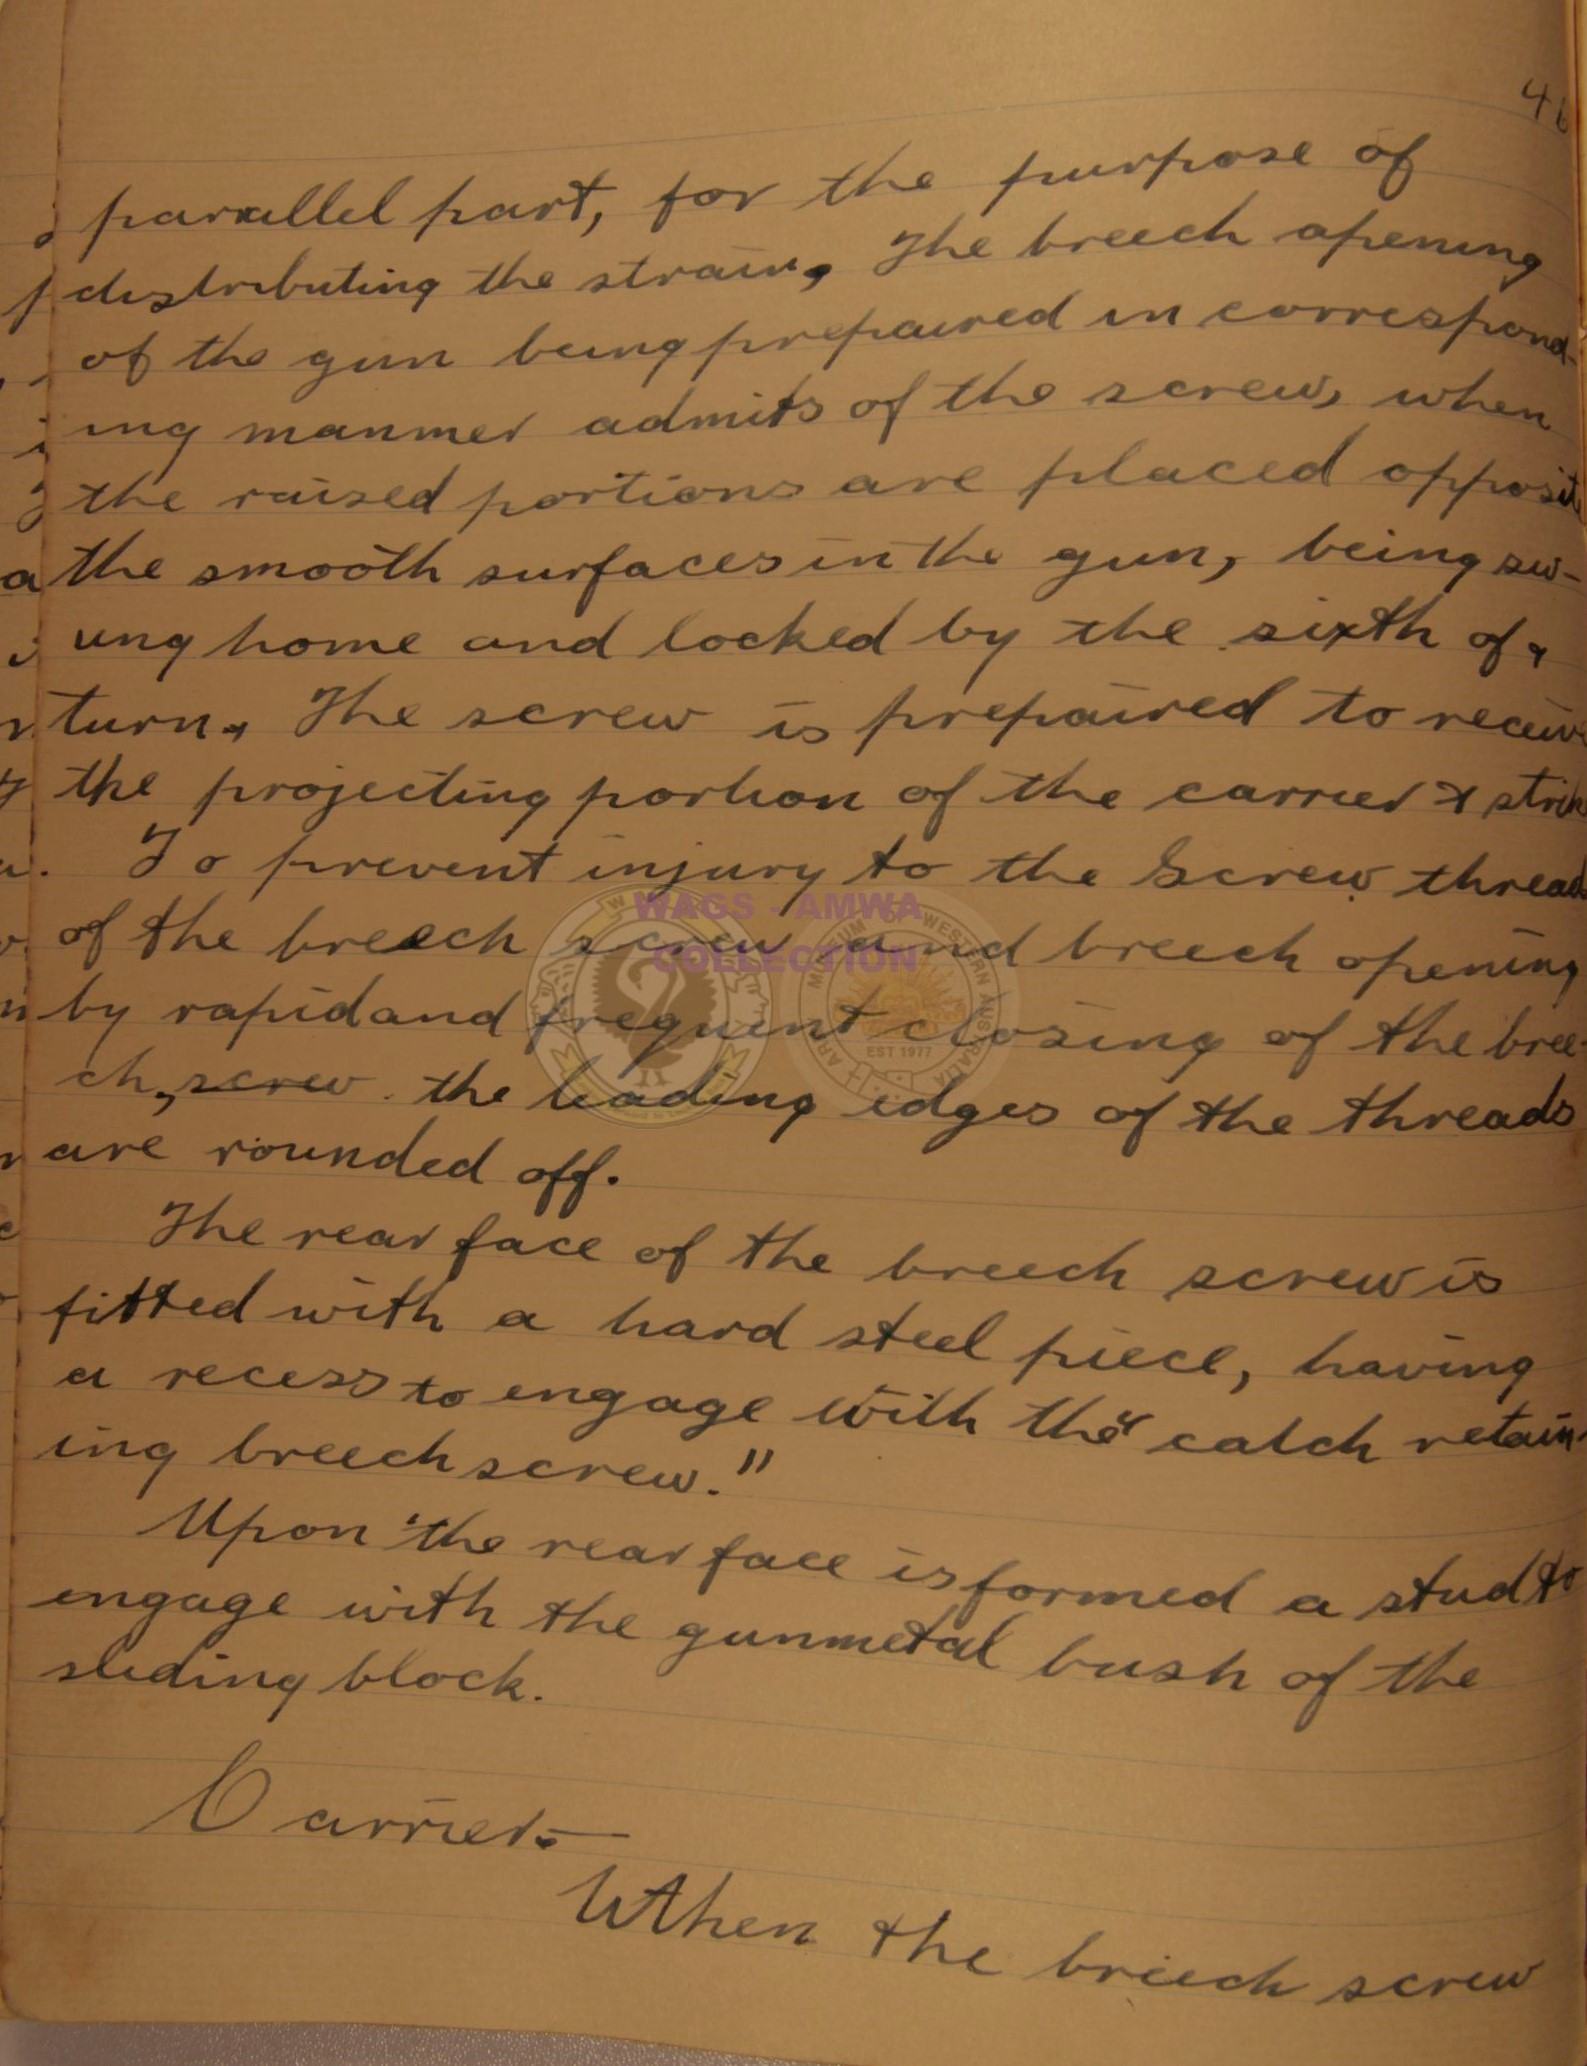 46
parallel part, for the purpose of
distributing the strain. The breech opening
of the gun being prepaired in correspond-
ing manmer admits of the screw, when
the raised portions are placed opposite
the smooth surfaces in the gun, being sw-
ung home and locked by the sixth of a
turn. The screw is prepaired to receive
the projecting portion of the carrier & strik
To prevent injury to the Screw thread
of the breech screw and breech opening
by rapid and frequent closing of the bree-
ch, screw the leading edges of the threads
are rounded off.
The rear face of the breech screw is
fitted with a hard steel piece, having
a recess to engage with the "catch retain-
ing breech screw."
Upon the rear face is formed a stud to
engage with the gunmetal bush of the
sliding block.
Carrier.—
When the breech screw
WAGS - AMWA
COLLECTION
ARMY MUSEUM OF WESTERN AUSTRALIA
EST 1977